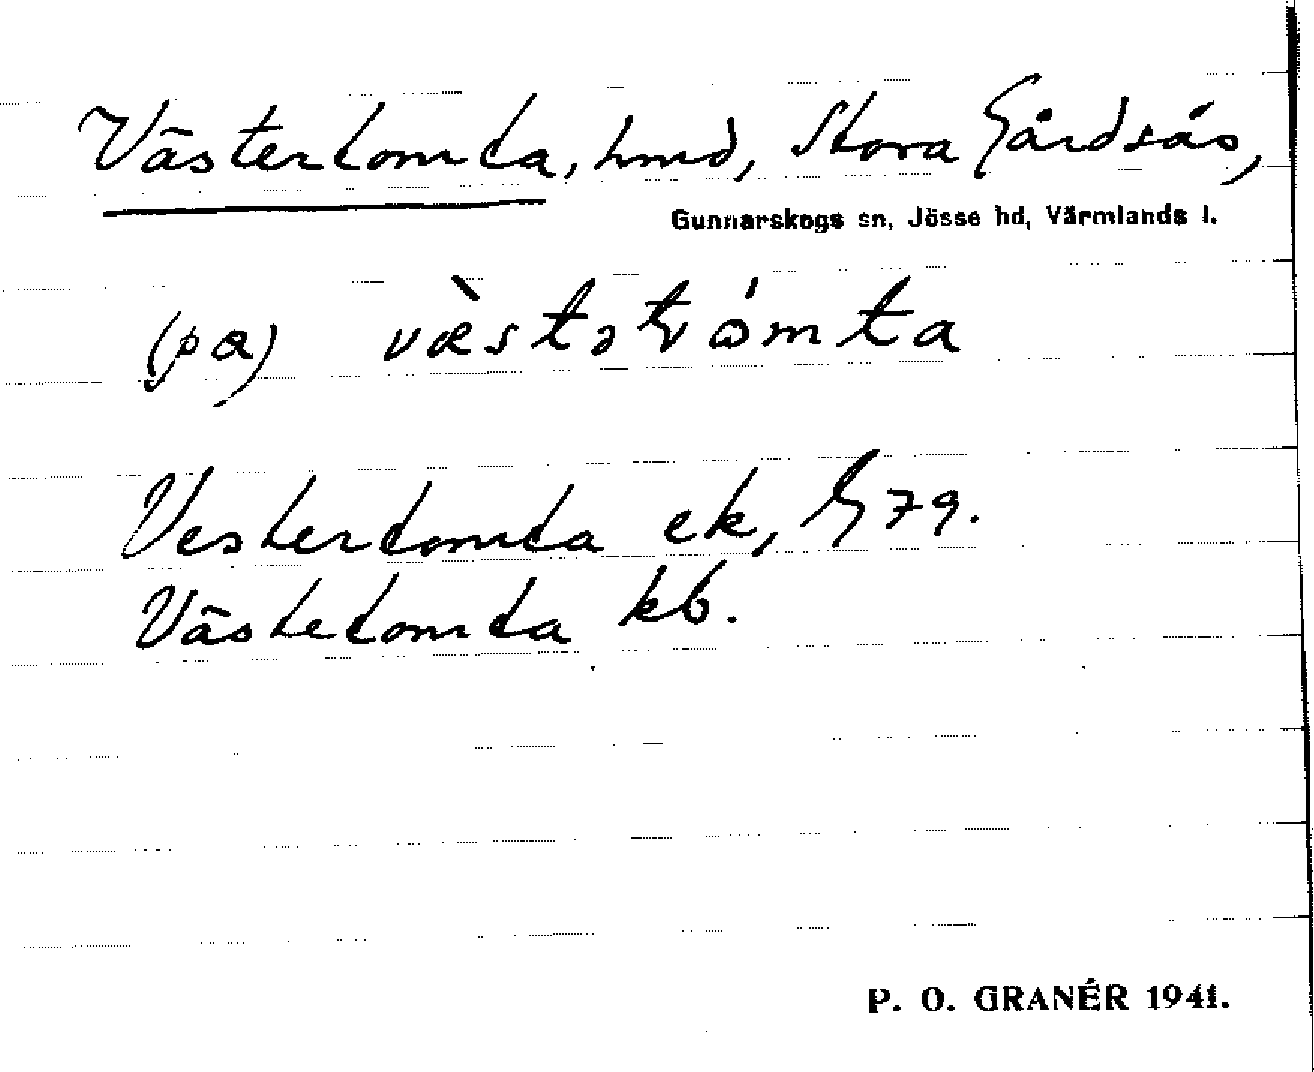 Västertomta, hmd, Stora Gårdsås,
Gunnarskogs sn, Jösse hd, Värmlands l.
(pa)
Vestertomta ek, G 79.
Västetomta kb.
P. O. GRANÉR 1941.